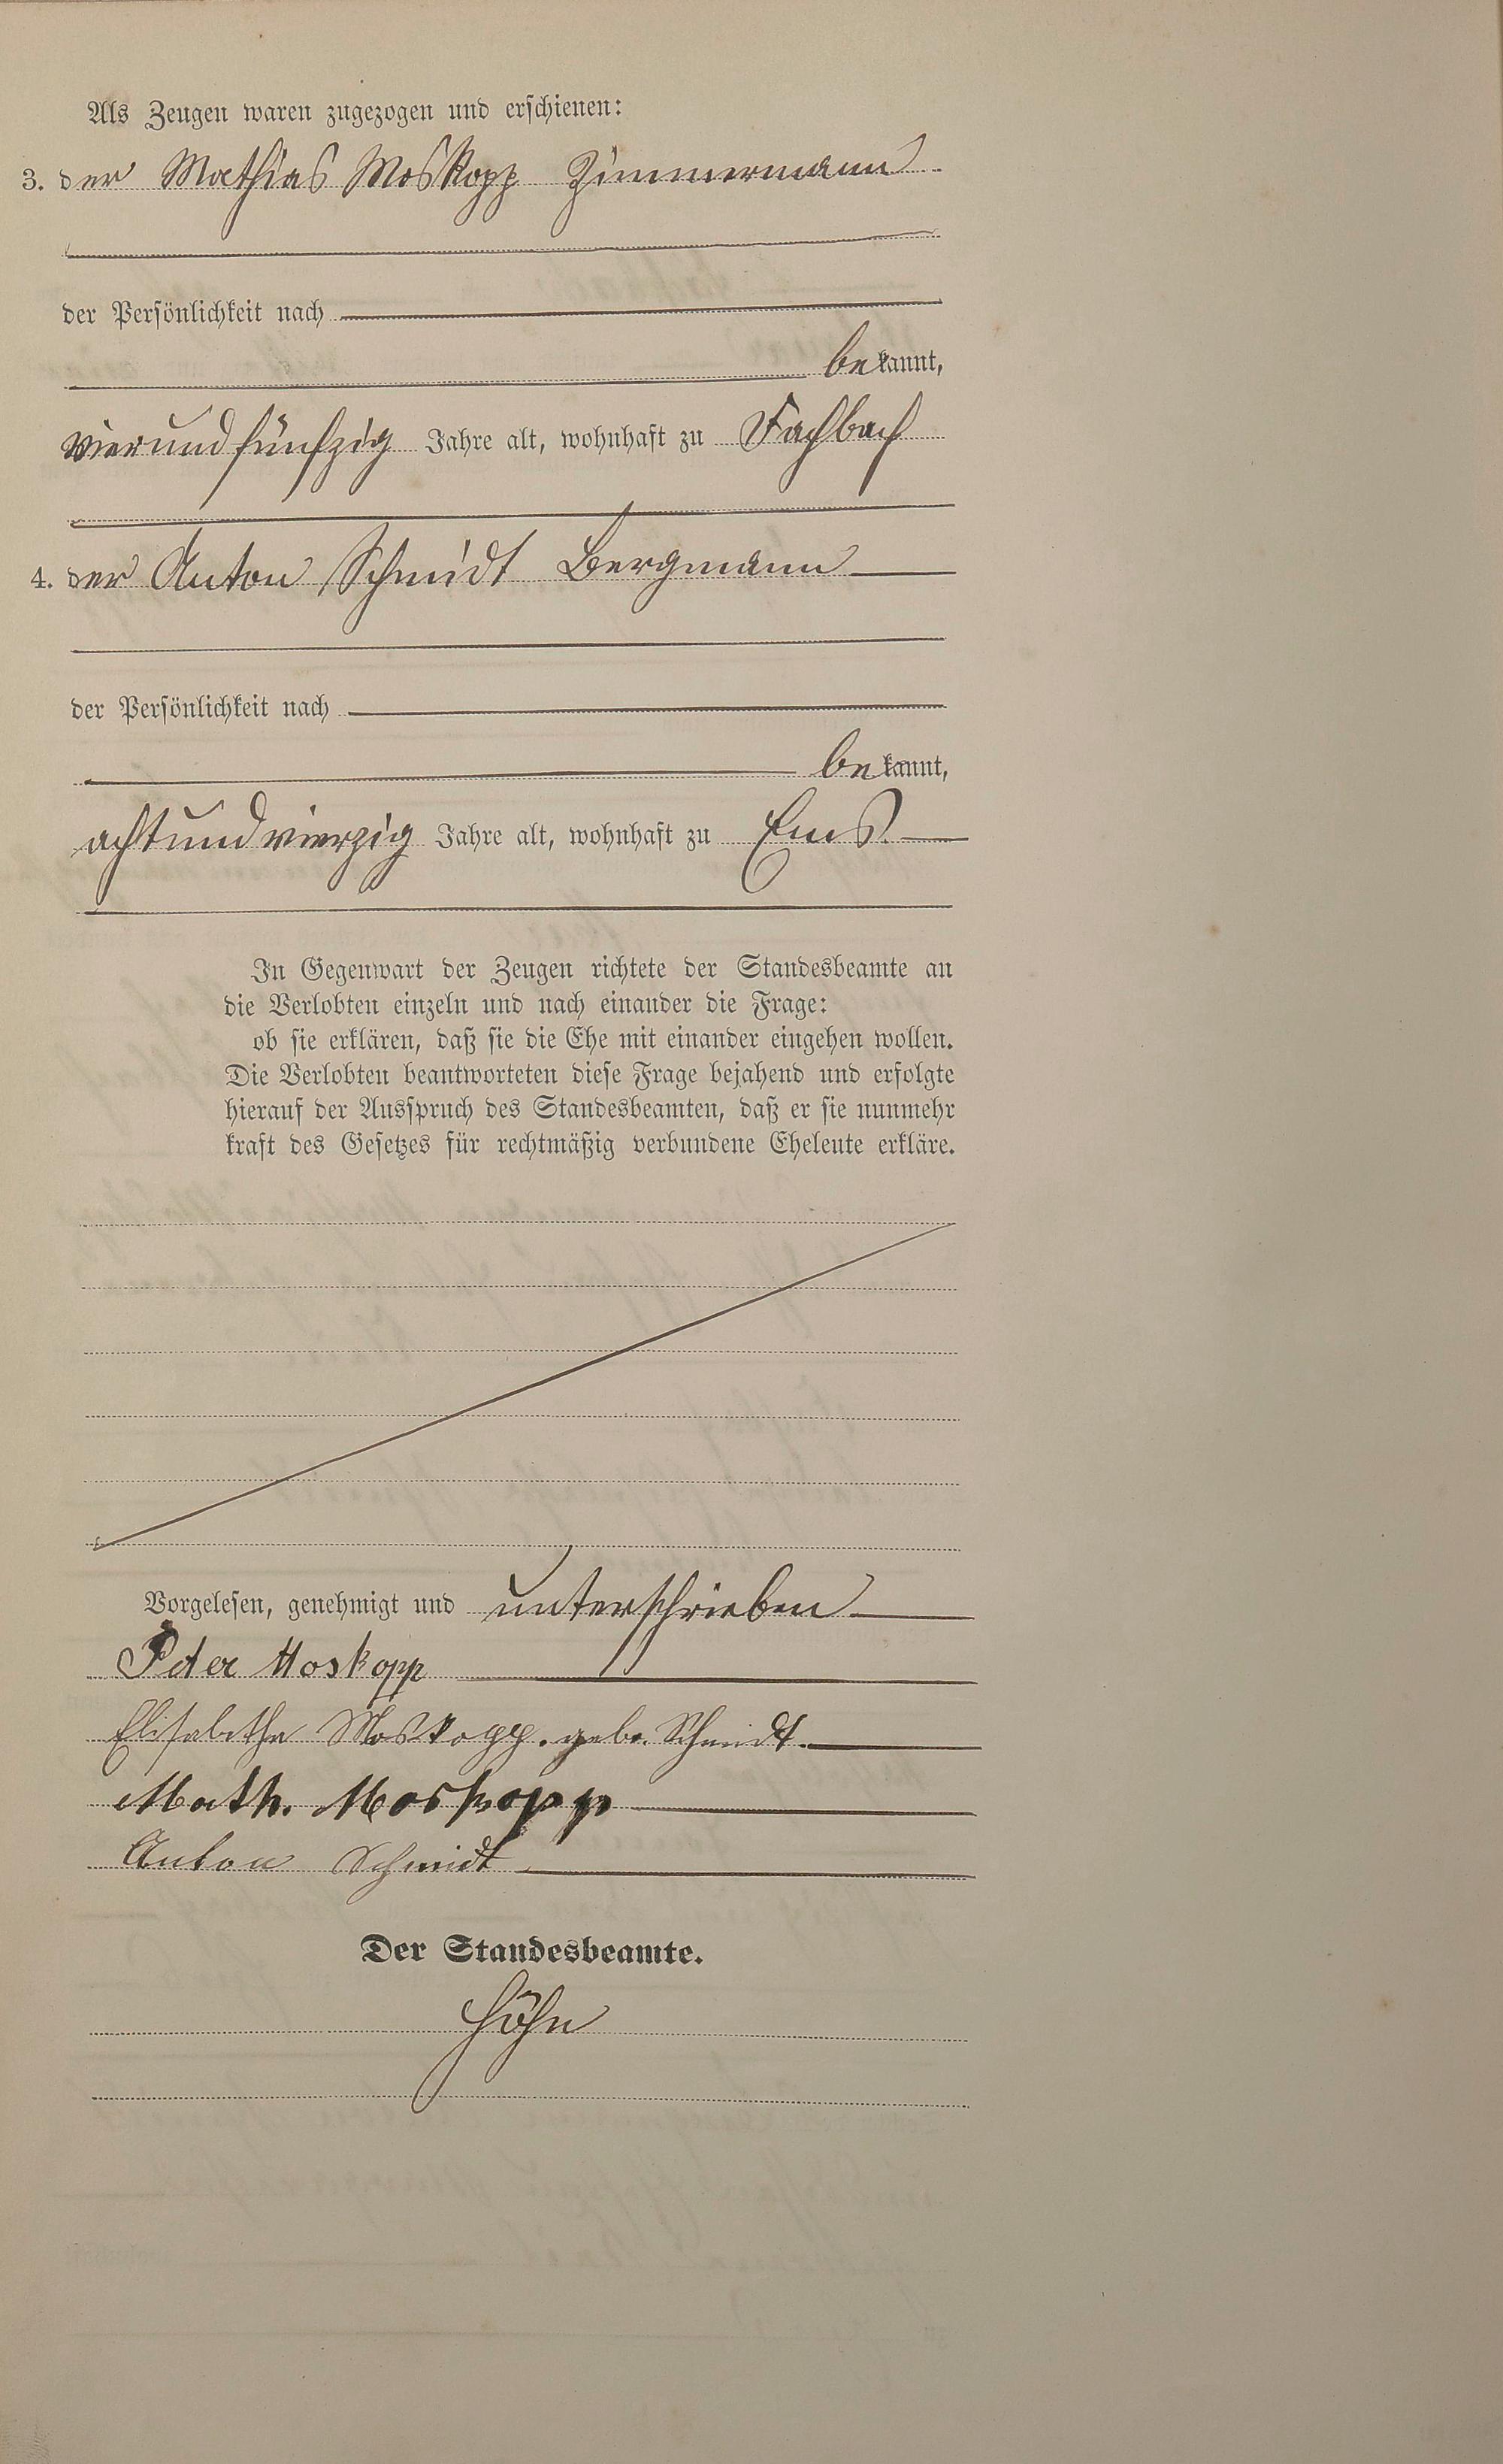 Als Zeugen waren zugezogen und erschienen:
3. der Mathias Moskopp Zimmermann
der Persönlichkeit nach
bekannt,
vierundfünfzig Jahre alt, wohnhaft zu Fachbach
4. der Anton Schmidt Bergmann
der Persönlichkeit nach
bekannt,
achtundvierzig Jahre alt, wohnhaft zu Ems
In Gegenwart der Zeugen richtete der Standesbeamte an
die Verlobten einzeln und nach einander die Frage:
ob sie erklären, daß sie die Ehe mit einander eingehen wollen.
Die Verlobten beantworteten diese Frage bejahend und erfolgte
hierauf der Ausspruch des Standesbeamten, daß er sie nunmehr
kraft des Gesetzes für rechtmäßig verbundene Eheleute erkläre.
Vorgelesen, genehmigt und unterschrieben
Peter Moskopp
Elisabetha Moskopp. geb. Schmidt.
Math. Moskopp
Anton Schmidt
Der Standesbeamte.
Höhn